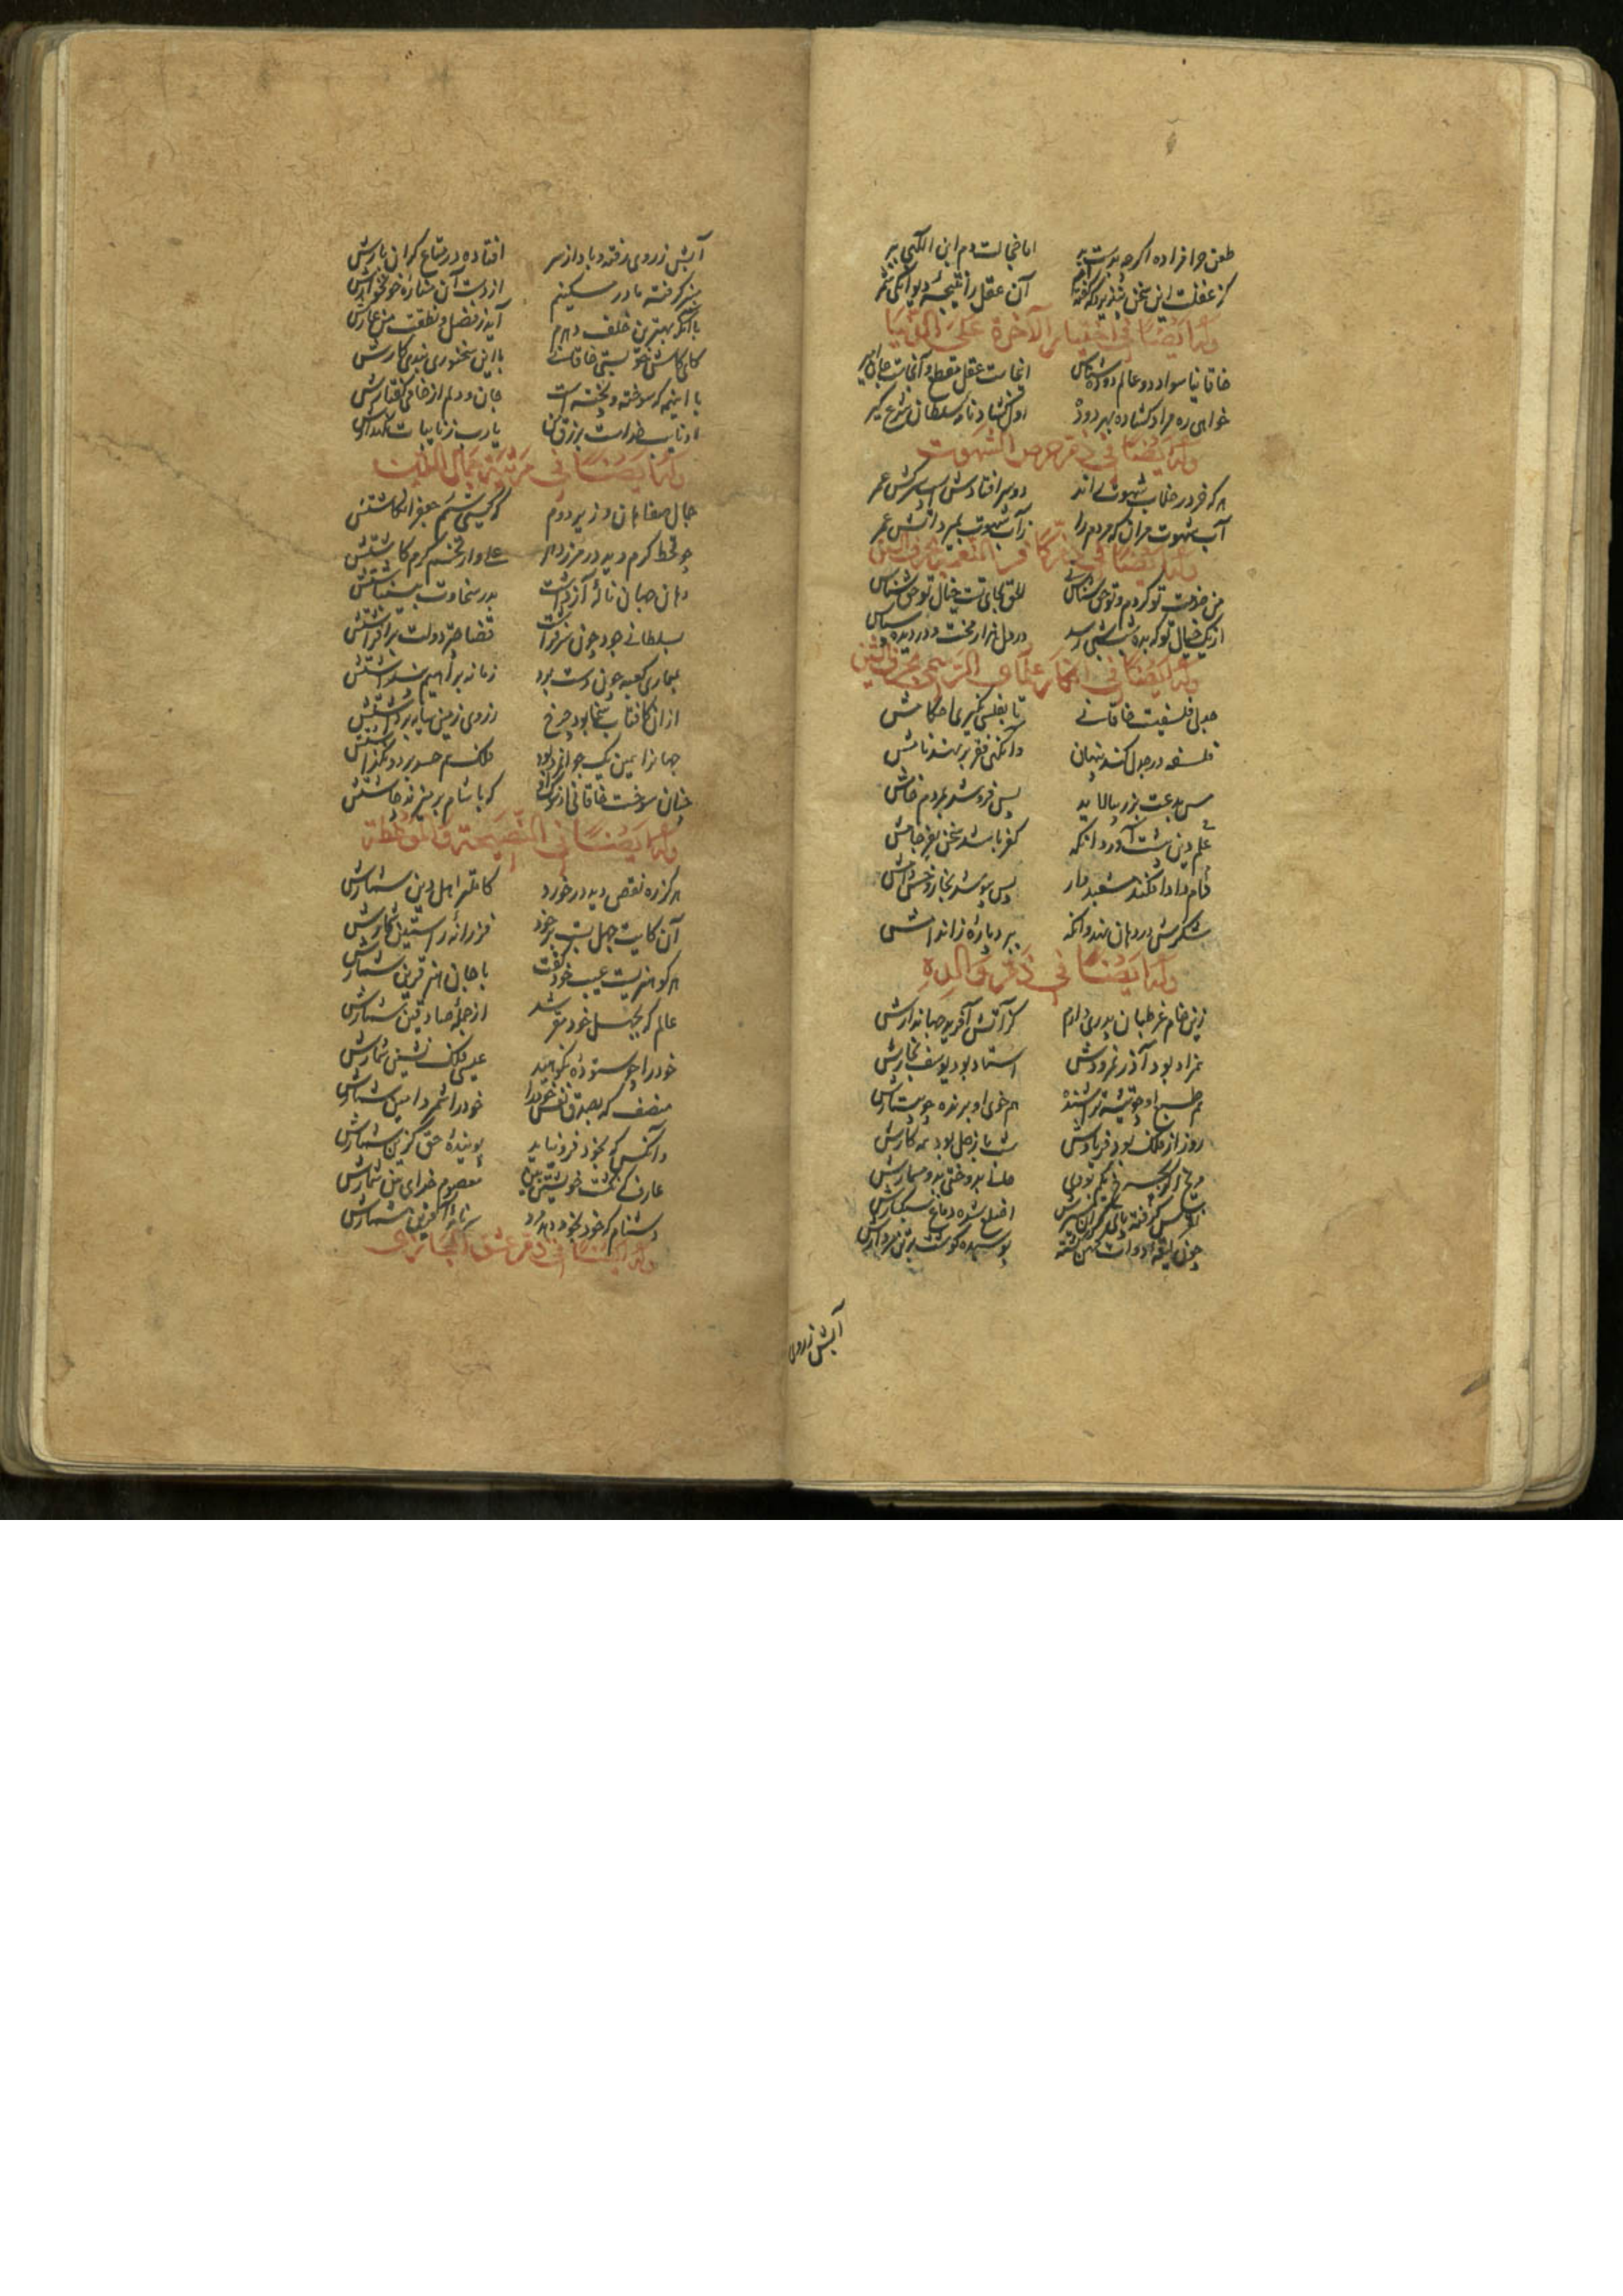 طعن حرامزاده اگرچه بدست
اما خجالت دم ابن
کز عقلت این سخن
آن عقل را نتیجهٔ دیوانگی شمر
وله ایضا فی اختیار الآخرة علی الدنیا
خاقانیا سواد دو عالم دو ده شناس
انجاست عقل مقطع و آنجاست جان امیر
خواهی ره مراد گشاده بهر دو ده
اول گشادنامه سلطان شرع گیر
وله ایضا فی ذم حرص الشهوت
هر که خر در خلاب شهوت راند
دوسر افتادش اسب سرکش عمر
آب شهوت مران که مردم را
زآب شهوت بمیرد آتش عمر
وله ایضا فی ذم کافر النعمة
من خدمت تو کردم و تو حق شناس نی
الحق بجای تست خیال تو حق شناس
از یک خیال تو که بدو شب رسد
در دل هزار منت و در دیده سپاس
وله ایضا فی انکار علماء الرسمی
جدلی فلسفیست خاقانی
تا بفلسی نگیری احکامش
فلسفه در جدل کند پنهان
وانگهی فقه برنهد نامش
مس بدعت بزر بیالاید
پس فروشد بمردم خامش
علم دین پیشت آورد وانگه
کفر باشد سخن بفرجامش
دام دردا افکند مشعبدوار
پس بپوشد بخار و خس دامش
شکرش در دهان نهد وانگه
ببرد پارهٔ ز اندامش
وله ایضا فی ذکر والده
زین خام غرطبان پدری دارم
کز آتش آفرید جهاندارش
همزاد بود آذر نمرودش
استاد بود یوسف نجارش
هم طبع او چو تیشه تراشنده
هم خوی او برنده چو منشارش
روز از فلک بود همه فریادش
شب با زحل بود همه کارش
مریخ اگر بچرخ یکم بودی
حالی بدوختی بدو مسمارش
نقرس گرفته پای گران سیرش
اصلع شده دماغ سبکسارش
چون لیقهٔ دوات کهن گشته
پوسیده گوشت در تن مردارش
آبش ز روی
آبش ز روی رفته و باد از سر
افتاده در متاع گران بارش
منبر گرفته مادر مسکینم
از دست آن منارهٔ خونخوارش
با آنکه بهترین خلف دهرم
آید ز فضل و فطنت من عارش
کای کاش جولهستی خاقانی
با این سخنوری نبدی کارش
با اینهمه که سوخته و پخته است
جان و دلم از خامی گفتارش
او نایب خداست برزق من
یا رب ز نایبات نگهدارش
وله ایضا فی مرثیة جمال الدین
جمال صفاهان وزیر دوم
که گیتی سیم جعفر انگاشتش
چو قحط کرم دید در مرز دهر
علی‌وار تخم کرم کاشتش
دهان جهان نالهٔ آز داشت
بدر سخاوت بینباشتش
سلطانی جود چون سر فراشت
قضا چتر دولت برافراشتش
بمعماری کعبه چون دست برد
زمانه براهیم پنداشتش
از آن کافتاب سخا بود چرخ
ز روی زمین سایه برداشتش
جهان را همین یک جوانمرد بود
فلک هم حسد برد و نگذاشتش
چنان سوخت خاقانی از سوک او
که با شام برمیزند چاشتش
وله ایضا فی النصیحة والموعظة
هرکز ره نقص دید در خورد
کاملتر اهل دین شمارش
آن کایت جهل بست بر خود
فرزانهٔ راستین شمارش
هر کو هنریست عیب خود گفت
با جان هنر قرین شمارش
عالم که بجهل خود مقر شد
از جملهٔ صادقین شمارش
خود را چو ستوده نکوهید
عیسی فلک نشین شمارش
منصف که بصدق نفس خود را
خود را شمرد امین شمارش
وانکس که بخود فرو نیاید
پویندهٔ حق گزین شمارش
عارف که نگشت خویشتن بین
معصوم خدای بین شمارش
دشنام که خود بخود دهد مرد
شایستهٔ آفرین شمارش
وله ایضا فی ذم عشق المجازی